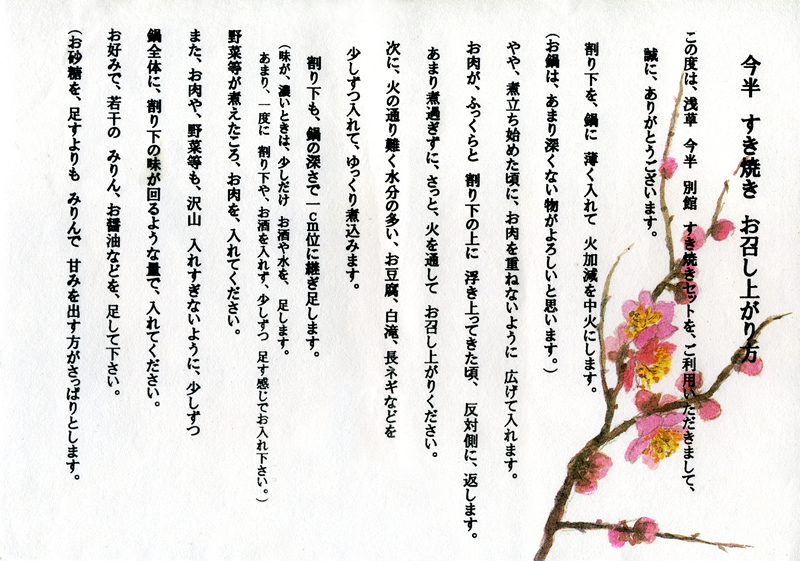 今半 すき焼き お召し上がり方
この度は、浅草 今半 別館 すき焼きセットを、ご利用いただきまして、
誠に、ありがとうございます。
割り下を、鍋に 薄く入れて 火加減を中火にします。
(お鍋は、あまり深くない物がよろしいと思います。)
やや、煮立ち始めた頃に、お肉を重ねないように 広げて入れます。
お肉が、ふっくらと 割り下の上に 浮き上ってきた頃、 反対側に、返します。
あまり煮過ぎずに、さっと、火を通して お召し上がりください。
次に、火の通り難く水分の多い、お豆腐、白滝、長ネギなどを
少しずつ入れて、ゆっくり煮込みます。
割り下も、鍋の深さで一cm位に継ぎ足します。
(味が、濃いときは、少しだけ お酒や水を、足します。
あまり、一度に 割り下や、お酒を入れず、少しずつ 足す感じでお入れ下さい。)
野菜等が煮えたころ、お肉を、入れてください。
また、お肉や、野菜等も、沢山 入れすぎないように、少しずつ
鍋全体に、割り下の味が回るような量で、入れてください。
お好みで、若干の みりん、お醤油などを、足して下さい。
(お砂糖を、足すよりも みりんで 甘みを出す方がさっぱりとします。